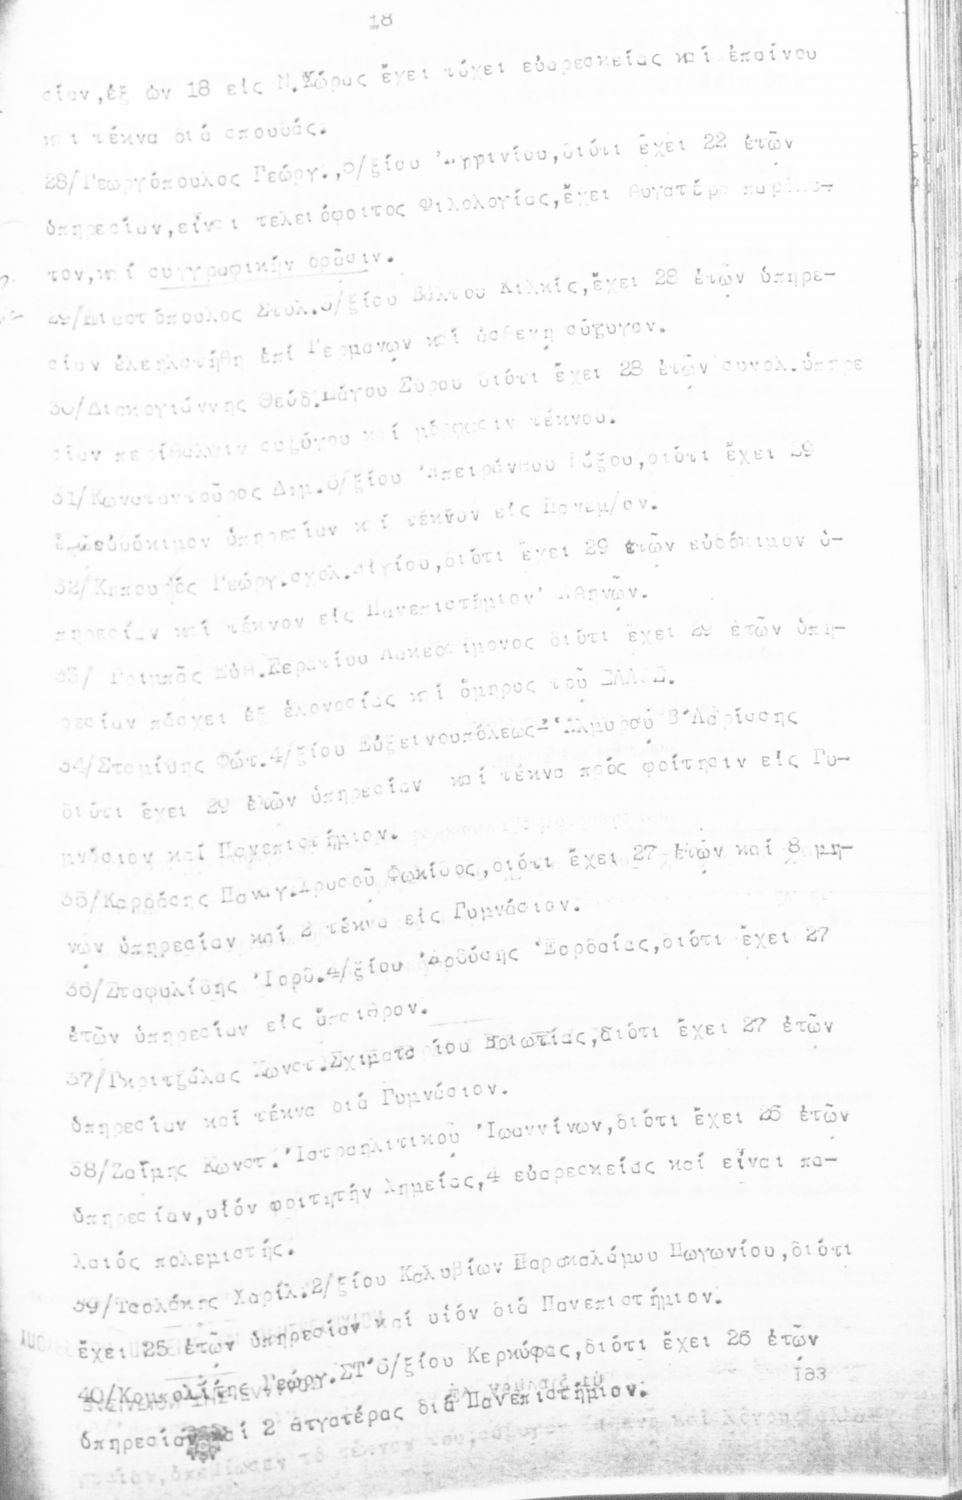 18
σίαν,ἐξ ὧν 18 εἰς Ν.Χώρας ἔχει τύχει εὐαρεσκείας καί ἐπαίνου
καί τέκνα διά σπουδάς.
28/Γεωργόπουλος Γεώργ.,6/ξίου Ἀγρινίου,διότι ἔχει 22 ἐτῶν
ὑπηρεσίαν,εἶναι τελειόφοιτος Φιλολογίας,ἔχει θυγατέρα
τον,καί συγγραφικήν δρᾶσιν.
29/ Στυλ.6/ξίου Κιλκίς,ἔχει 28 ἐτῶν ὑπηρε-
σίαν ἐπί Γερμανῶν καί ἀσθενῆ σύζυγον.
30/Διακογιάννης Θεόδ.Πάγου Σύρου διότι ἔχει 28 ἐτῶν συνολ.ὑπηρε
σίαν περίθαλψιν συζύγου καί μόρφωσιν τέκνου.
31/Κωνσταντοῦρος Δημ.6/ξίου Ἀπειράνθου Νάξου,διότι ἔχει 29
ὑπηρεσίαν καί τέκνον εἰς Πανεπ/ον.
32/ Γεώργ.σχολ.Αἰγίου,διότι ἔχει 29 ἐτῶν εὐδόκιμον ὑ-
πηρεσίαν καί τέκνον εἰς Πανεπιστήμιον Ἀθηνῶν.
33/ Εὐθ. διότι ἔχει 29 ἐτῶν ὑπη-
ρεσίαν πάσχει ἐξ ἑλονοσίας καί ὅμηρος τοῦ ΕΛΑΣ.
34/Σταμίσης Φώτ.4/ξίου Εὐξεινουπόλεως-Ἁλμυροῦ Β΄Λαρίσσης
διότι ἔχει 29 ἐτῶν ὑπηρεσίαν καί τέκνα πρός φοίτησιν εἰς Γυ-
μνάσιον καί Πανεπιστήμιον.
35/Καρδάσης Παναγ.Χρυσοῦ Φωκίδος,διότι ἔχει 27 ἐτῶν καί 8 μη-
νῶν ὑπηρεσίαν καί 2 τέκνα εἰς Γυμνάσιον.
36/Σταφυλίδης Ἰορδ.4/ξίου Ἀρδάσης Ἐορδαίας,διότι ἔχει 27
ἐτῶν ὑπηρεσίαν εἰς ὕπαιθρον.
37/Γκριτζάλας Κωνστ.Σχηματαρίου Βοιωτίας,διότι ἔχει 27 ἐτῶν
ὑπηρεσίαν καί τέκνα διά Γυμνάσιον.
38/Ζαΐμης Κωνστ.Ἰσραηλιτικοῦ Ἰωαννίνων,διότι ἔχει 26 ἐτῶν
ὑπηρεσίαν,υἱόν φοιτητήν Χημείας,4 εὐαρεσκείας καί εἶναι πα-
λαιός πολεμιστής.
39/Τσολάκης Χαρίλ.2/ξίου Καλυβίων Παρακαλάμου Πωγωνίου,διότι
ἔχει 25 ἐτῶν ὑπηρεσίαν καί υἱόν διά Πανεπιστήμιον.
40/Κομπολίτης Γεώργ.ΣΤ΄6/ξίου Κερκύρας,διότι ἔχει 26 ἐτῶν
ὑπηρεσίαν καί 2 θυγατέρας διά Πανεπιστήμιον.